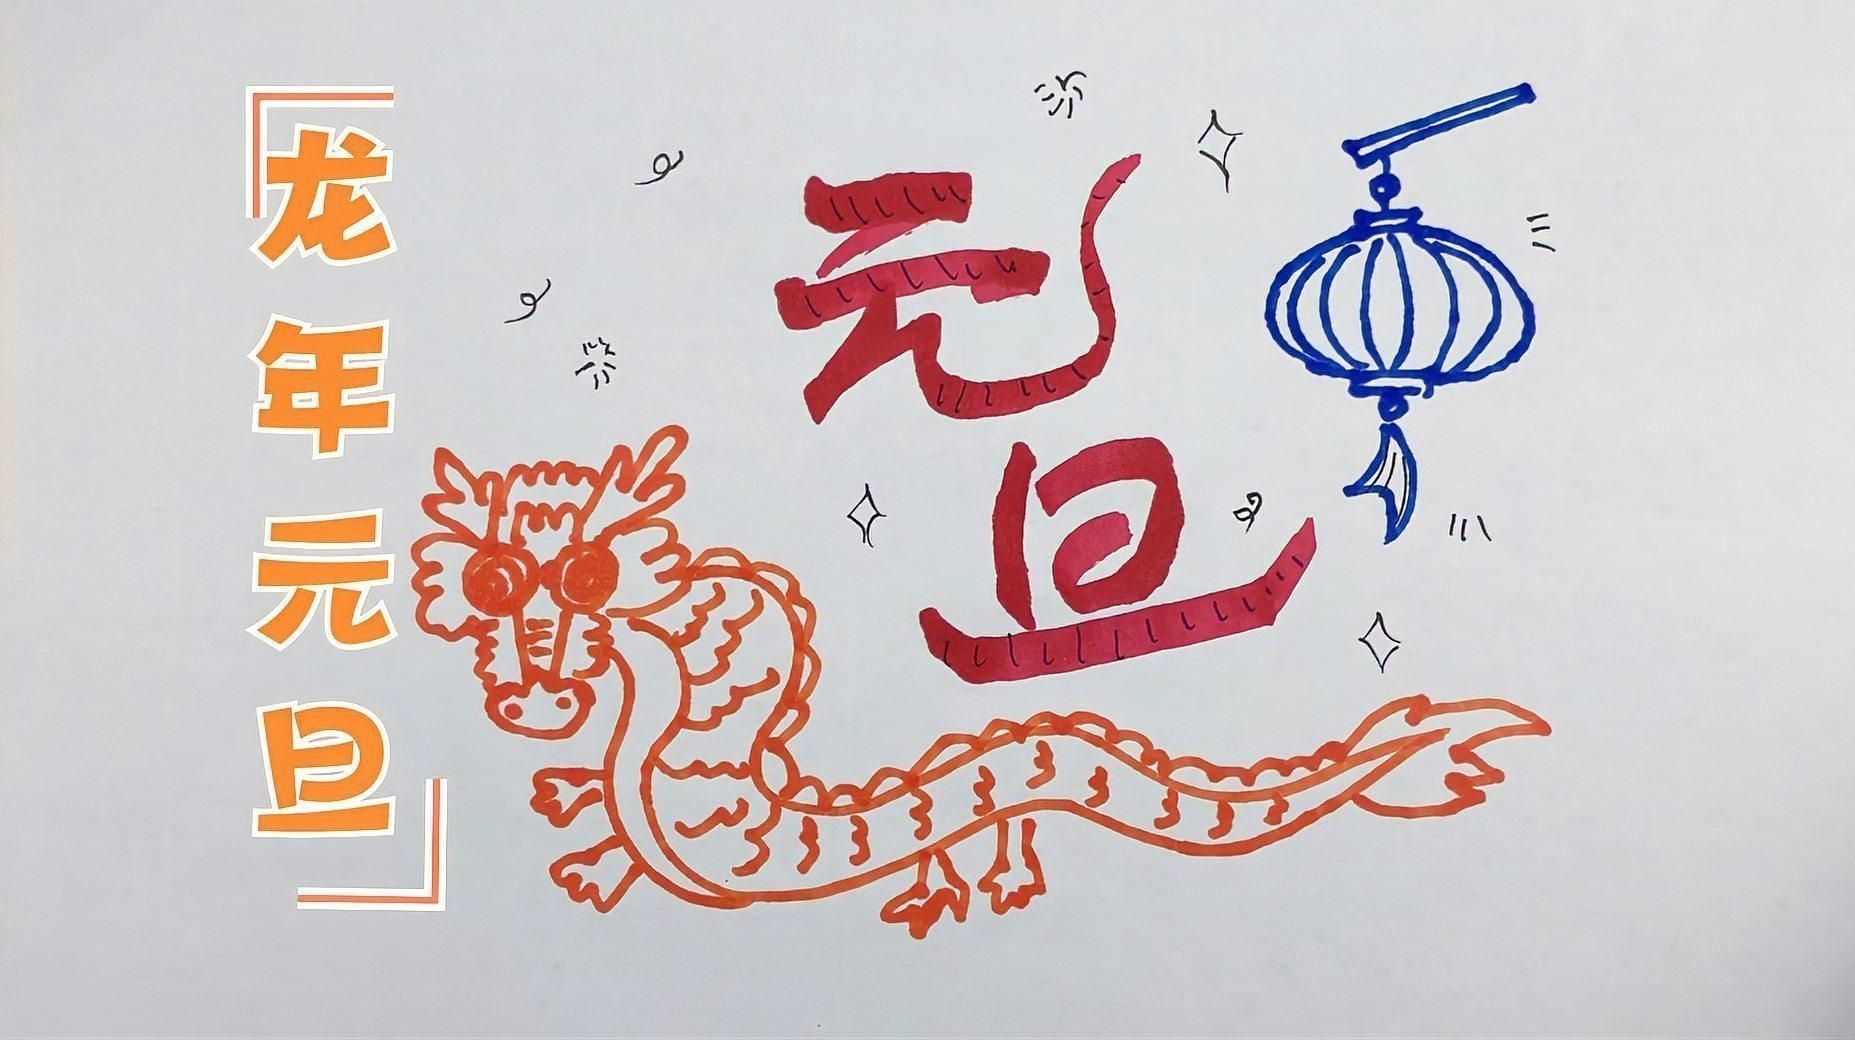 龙年元旦
元旦